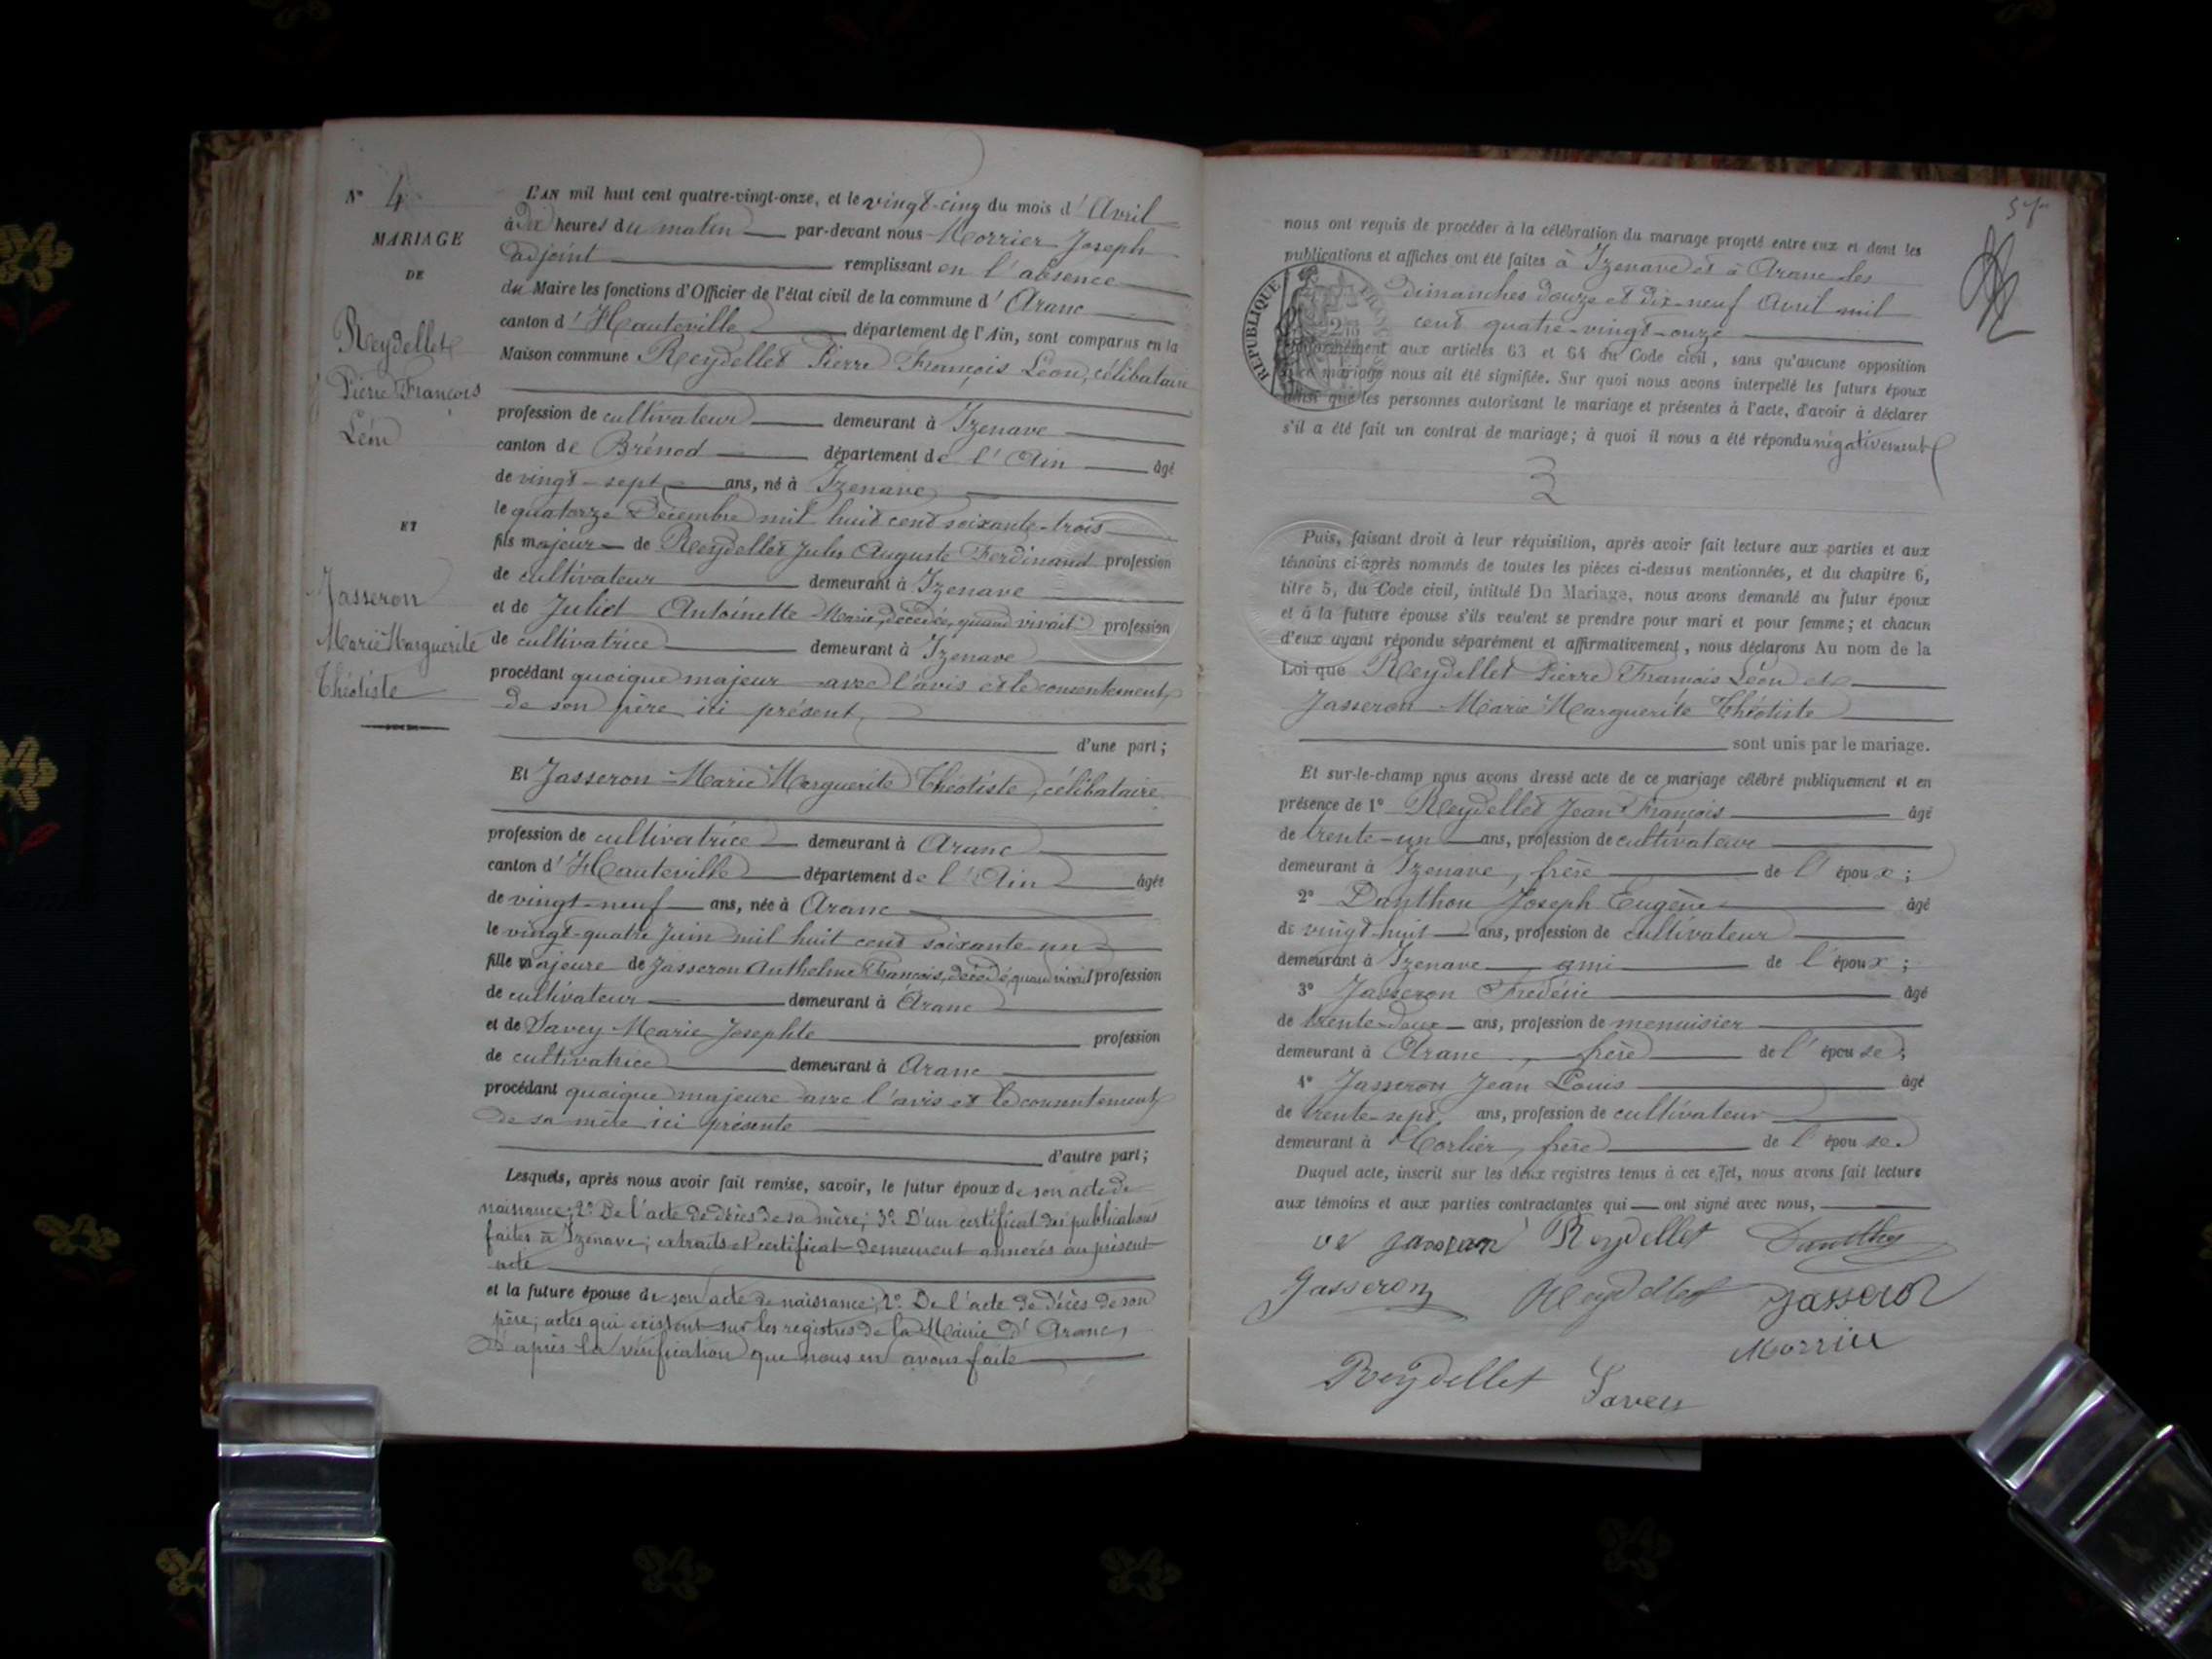 N° 4
MARIAGE
DE
Reydellet
Pierre François
Léon
ET
Jasseron
Marie Marguerite
Théotiste
L'AN mil huit cent quatre-vingt-onze, et le vingt-cinq du mois d'Avril
à dix heures du matin par-devant nous Morrier Joseph
adjoint remplissant en l'absence
du Maire les fonctions d'Officier de l'état civil de la commune d'Aranc
canton d'Hauteville département de l'Ain, sont comparus en la
Maison commune Reydellet Pierre François Léon, célibataire
profession de cultivateur demeurant à Izenave
canton de Brénod département de l'Ain âgé
de vingt-sept ans, né à Izenave
le quatorze Décembre mil huit cent soixante-trois
fils majeur de Reydellet Jules Auguste Ferdinand profession
de cultivateur demeurant à Izenave
et de Juliet Antoinette Marie, décédée, quand vivait profession
de cultivatrice demeurant à Izenave
procédant quoique majeur avec l'avis et le consentement
de son père ici présent
d'une part;
Et Jasseron Marie Marguerite Théotiste, célibataire
profession de cultivatrice demeurant à Aranc
canton d'Hauteville département de l'Ain âgée
de vingt-neuf ans, née à Aranc
le vingt-quatre Juin mil huit cent soixante-un
fille majeure de Jasseron Anthelme François, décédé, quand vivait profession
de cultivateur demeurant à Aranc
et de Savey Marie Josephte profession
de cultivatrice demeurant à Aranc
procédant quoique majeure avec l'avis et le consentement
de sa mère ici présente
d'autre part;
Lesquels, après nous avoir fait remise, savoir, le futur époux de son acte de
naissance; 2° De l'acte de décès de sa mère; 3° D'un certificat des publications
faites à Izenave; extraits et certificat demeurent annexés au présent
acte
et la future épouse de son acte de naissance; 2° De l'acte de décès de son
père; actes qui existent sur les registres de la Mairie d'Aranc,
D'après la vérification que nous en avons faite
nous ont requis de procéder à la célébration du mariage projeté entre eux et dont les
publications et affiches ont été faites à Izenave et à Aranc les
dimanches douze et dix-neuf Avril mil
cent quatre-vingt-onze
RÉPUBLIQUE FRANÇAISE
conformément aux articles 63 et 64 du Code civil, sans qu'aucune opposition
à ce mariage nous ait été signifiée. Sur quoi nous avons interpellé les futurs époux
ainsi que les personnes autorisant le mariage et présentes à l'acte, d'avoir à déclarer
s'il a été fait un contrat de mariage; à quoi il nous a été répondu négativement
Puis, faisant droit à leur réquisition, après avoir fait lecture aux parties et aux
témoins ci-après nommés de toutes les pièces ci-dessus mentionnées, et du chapitre 6,
titre 5, du Code civil, intitulé Du Mariage, nous avons demandé au futur époux
et à la future épouse s'ils veulent se prendre pour mari et pour femme; et chacun
d'eux ayant répondu séparément et affirmativement, nous déclarons Au nom de la
Loi que Reydellet Pierre François Léon et
Jasseron Marie Marguerite Théotiste
sont unis par le mariage.
Et sur-le-champ nous avons dressé acte de ce mariage célébré publiquement et en
présence de 1° Reydellet Jean François âgé
de trente-un ans, profession de cultivateur
demeurant à Izenave, frère de l'époux;
2° Danthon Joseph Eugène âgé
de vingt-huit ans, profession de cultivateur
demeurant à Izenave ami de l'époux;
3° Jasseron Frédéric âgé
de trente-deux ans, profession de menuisier
demeurant à Aranc, frère de l'épouse;
4° Jasseron Jean Louis âgé
de trente-sept ans, profession de cultivateur
demeurant à Corlier, frère de l'épouse.
Duquel acte, inscrit sur les deux registres tenus à cet effet, nous avons fait lecture
aux témoins et aux parties contractantes qui ont signé avec nous,
Jasseron Reydellet Danthon
Jasseron Reydellet Jasseron
Morrier
Reydellet Savey